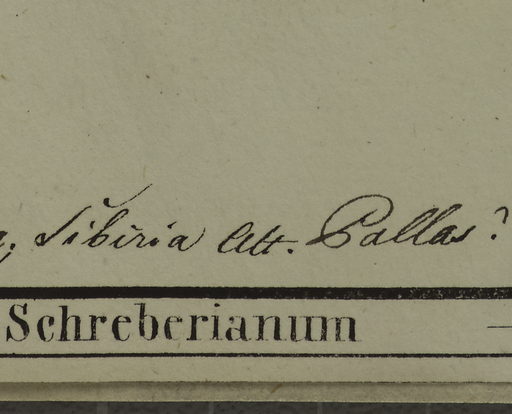 Sibiria Att. Pallas?
Schreberianum